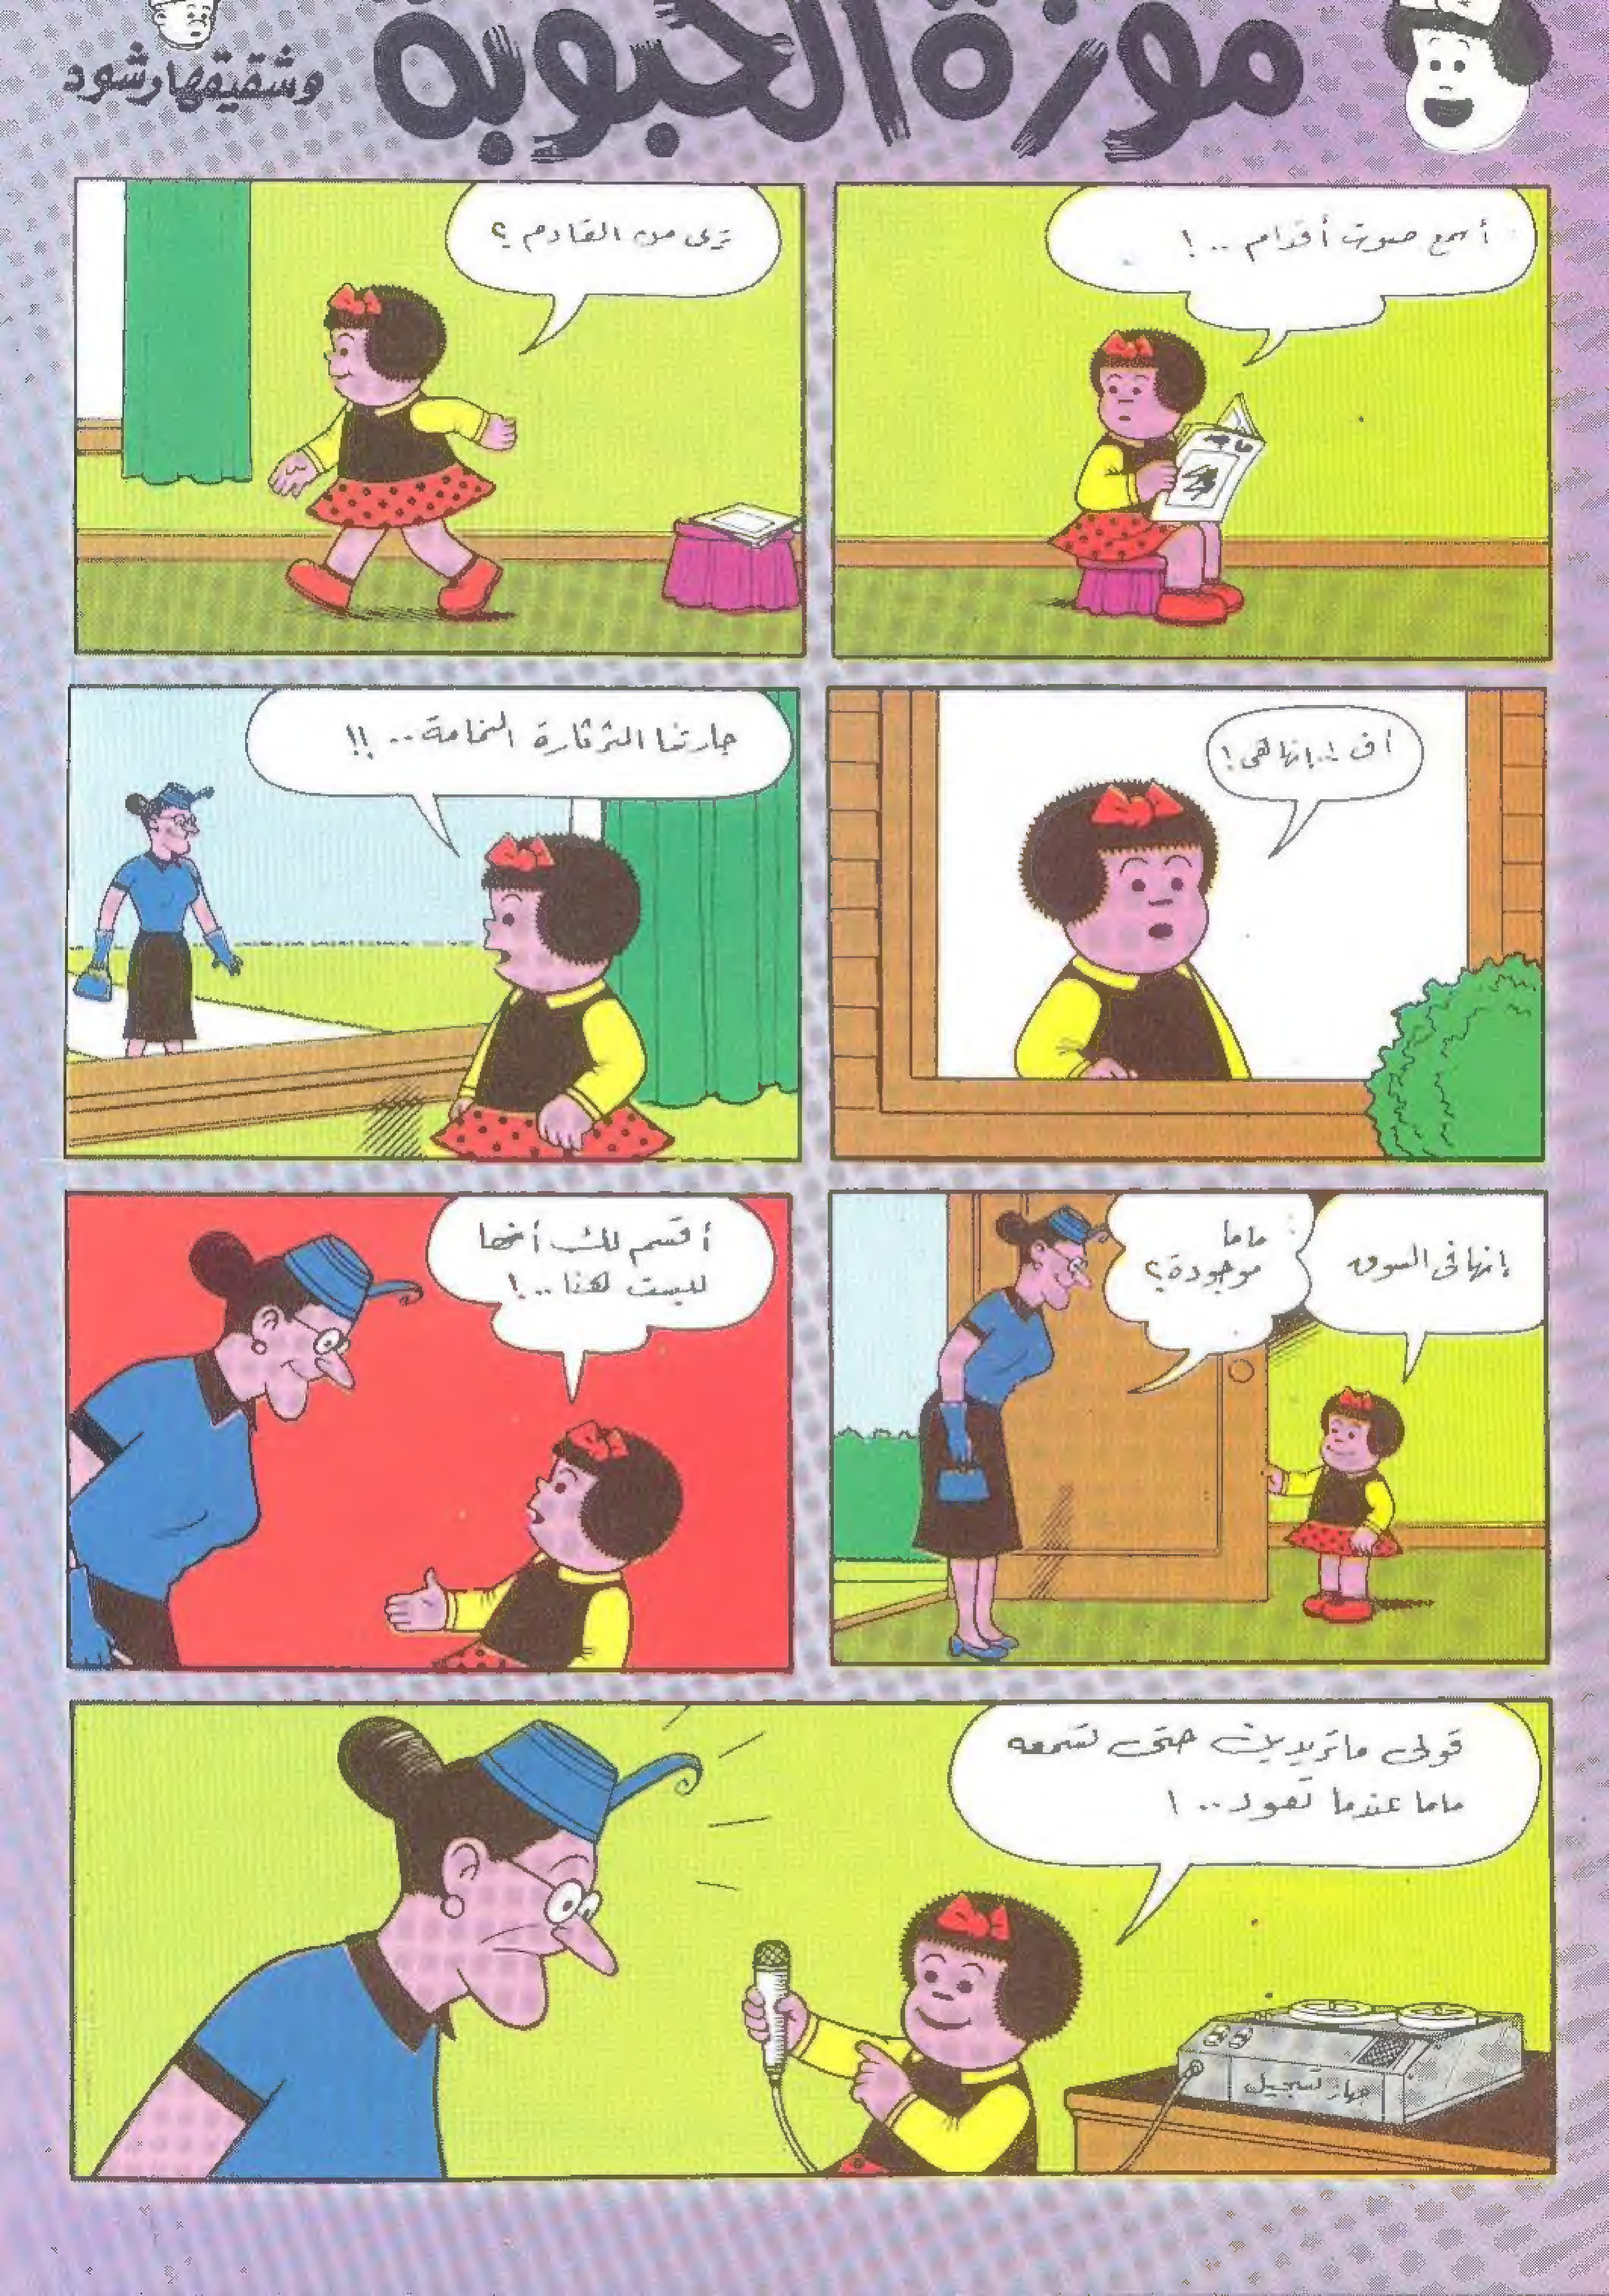 موزة الحبوبة
وشقيقها رشود
أسمع صوت أقدام .. !
ماجد
ترى من القادم ؟
اف !.. إنها هي !
جارتنا الثرثارة النمامة .. !!
إنها في السوق
ماما
موجودة ؟
أقسم لك أنها
ليست هنا .. !
قولي ما تريدين حتى تسمعه
ماما عندما تعود .. !
جهاز تسجيل